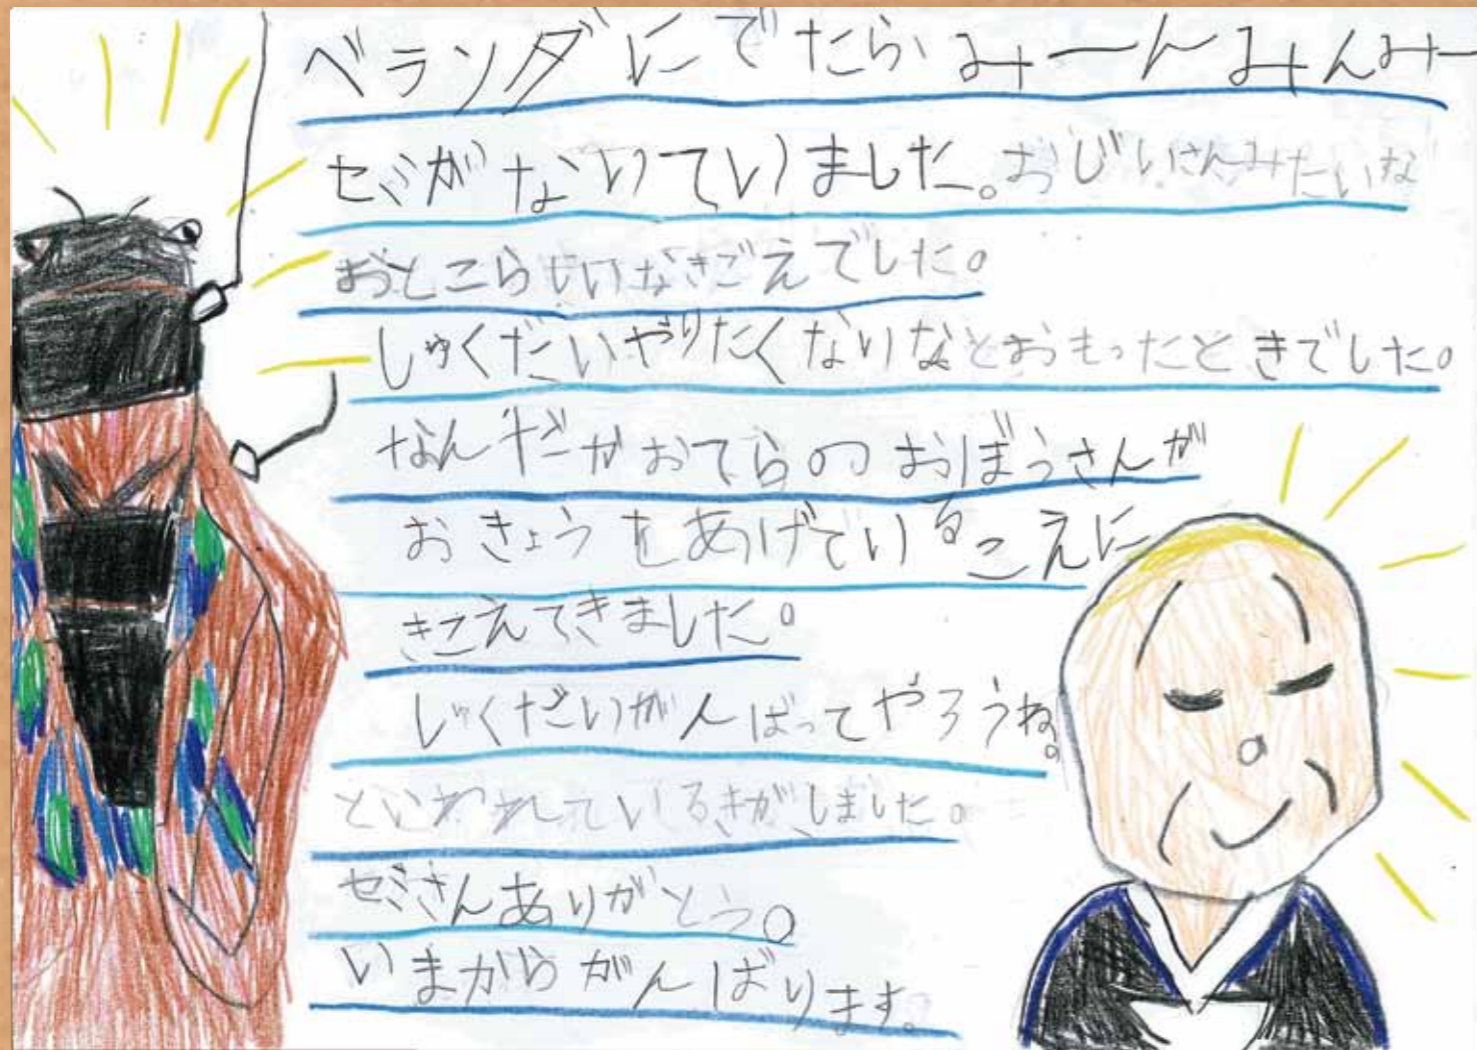 ベランダにでたら、みーんみんみー
セミがないていました。おじいさんみたいな
おとこらしいなきごえでした。
しゅくだいやりたくないなとおもったときでした。
なんだかおてらのおぼうさんが
おきょうをあげているこえに
きこえてきました。
しゅくだいがんばってやろうね。
といわれているきがしました。
セミさんありがとう。
いまからがんばります。